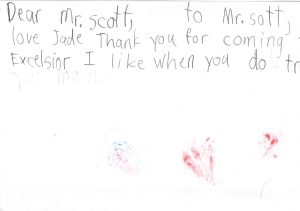 Dear Mr. Scott, to Mr. sott,
love Jade Thank you for coming
Excelsior I like when you do tr